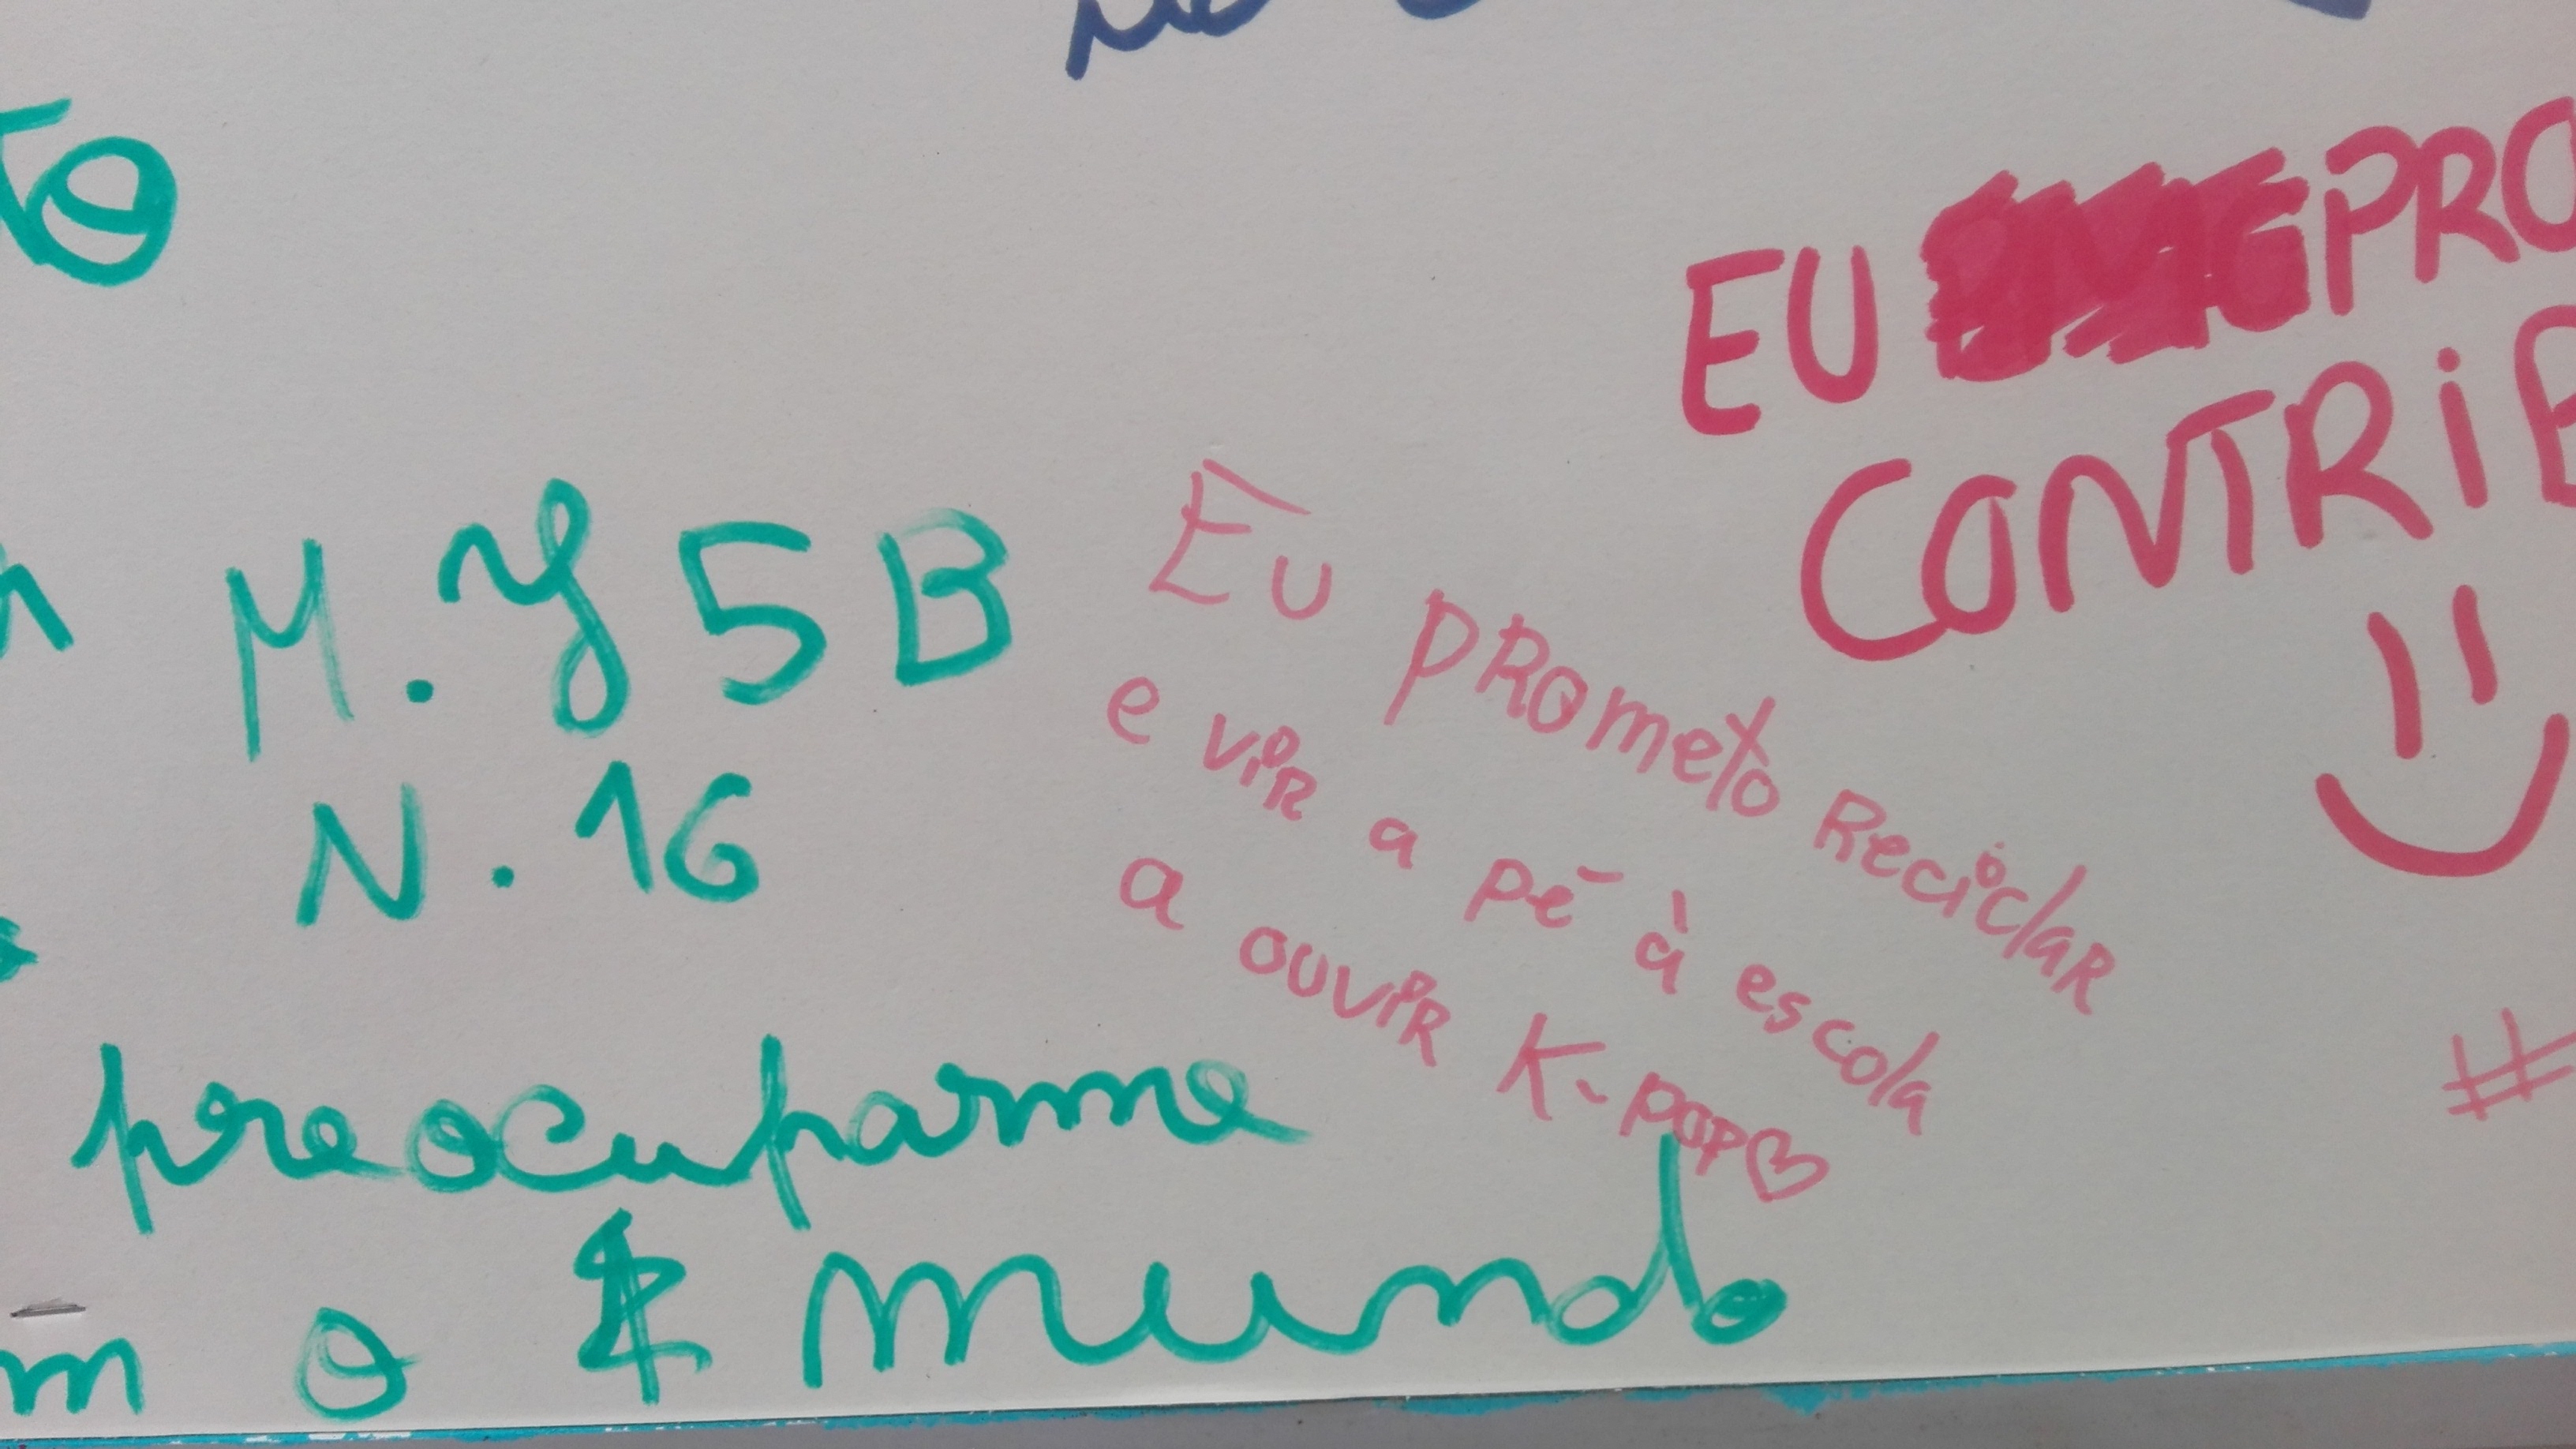 EU PRO
CONTRIB
M. Y 5 B
N. 16
Eu prometo Reciclar
e vir a pé à escola
a ouvir K-pop♡
#
preocuparme
m o mundo